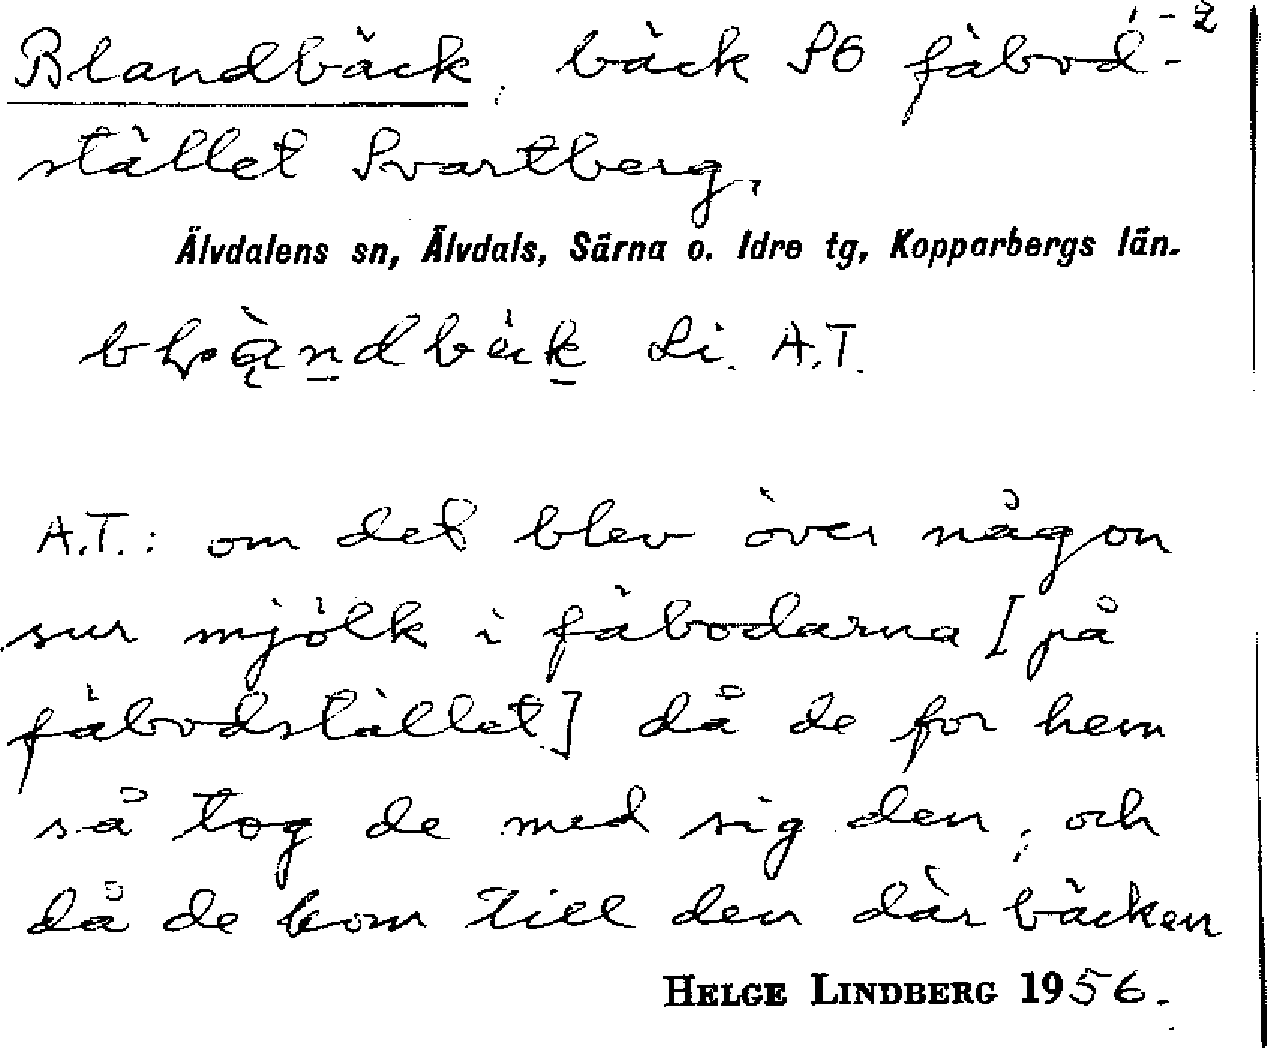 1-2
Blandbäck, bäck SÖ fäbod-
stället Svartberg.
Älvdalens sn, Älvdals, Särna o. Idre tg, Kopparbergs län.
Li. A.T.
A.T.: om det blev över någon
sur mjölk i fäbodarna [på
fäbodstället] då de for hem
så tog de med sig den, och
då de kom till den där bäcken
HELGE LINDBERG 1956.